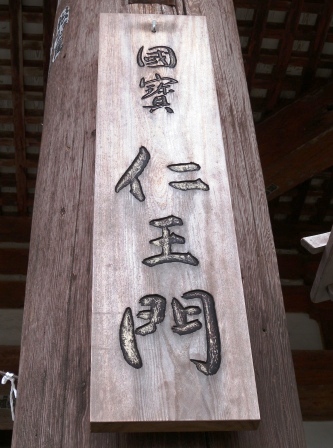 國寳
仁王門